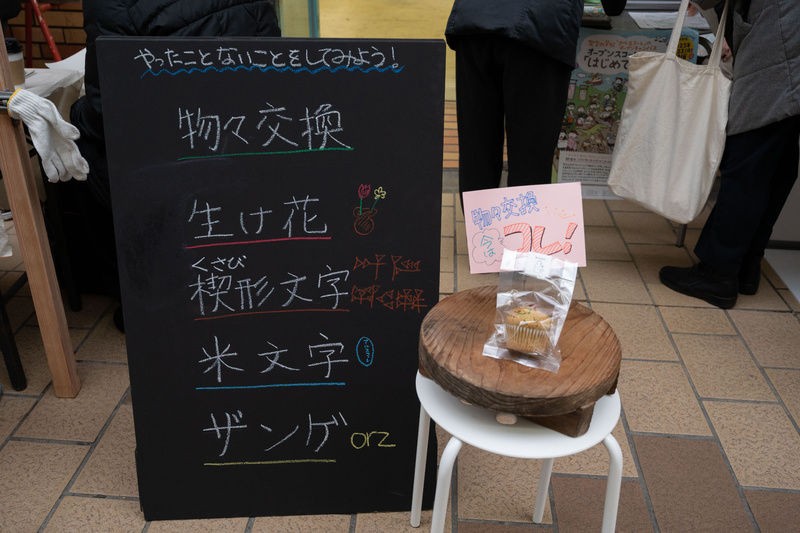 やったことないことをしてみよう!
物々交換
生け花
くさび
楔形文字
米文字
ザンゲ orz
物々交換
今は
コレ!
オープンスコー
「はじめて